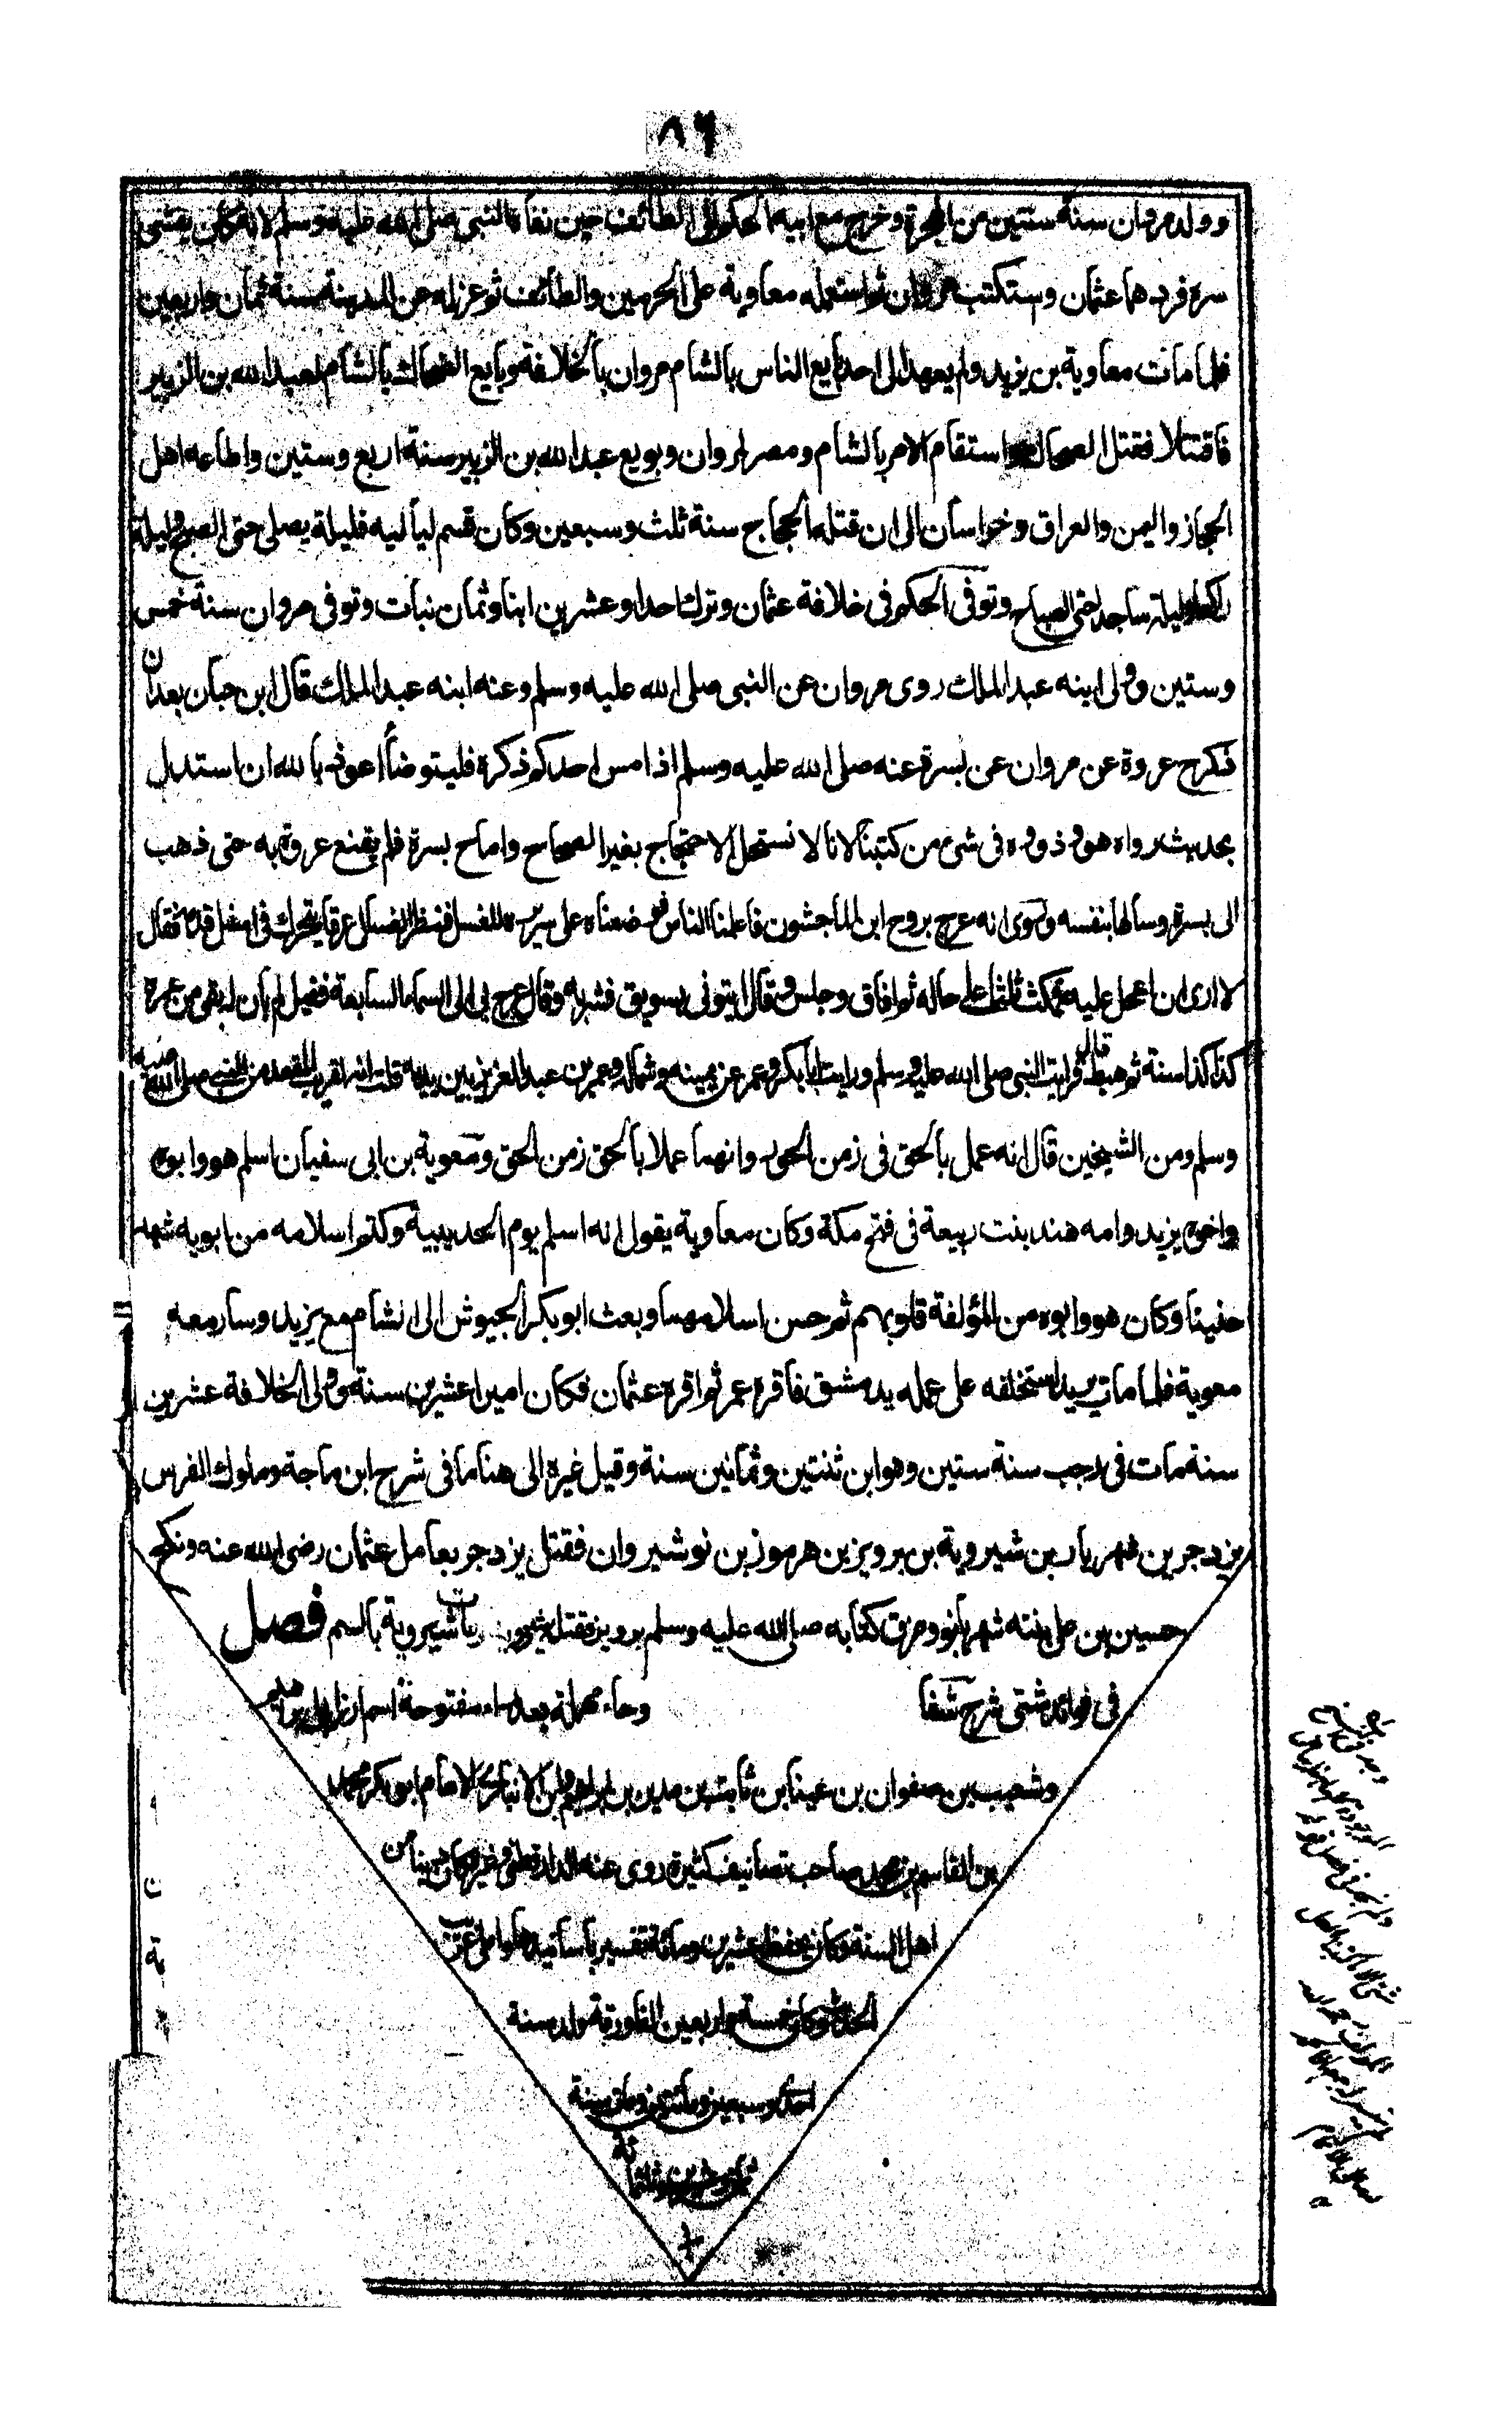 ٨٦
وولد مروان سنة سنتين من الهجرة وخرج مع ابيه الحكم الى الطائف حين نفاه النبى صلى الله عليه وسلم لانه كان يفشى
سره فردهما عثمان وستكتب مروان ثم استعمله معاوية على الحرمين والطائف ثم عزله عن المدينة سنة ثمان واربعين
فلما مات معاوية بن يزيد ولم يعهد الى احد بايع الناس بالشام مروان بالخلافة وبايع الضحاك بالشام لعبد الله بن الزبير
فاقتتلا فقتل الضحاك واستقام الامر بالشام ومصر لمروان وبويع عبد الله بن الزبير سنة اربع وستين واطاعه اهل
الحجاز واليمن والعراق وخراسان الى ان قتله الحجاج سنة ثلث وسبعين وكان قسم لياليه فليلة يصلى حتى الصبح وليلة
راكعا وليلة ساجدا حتى الصباح وتوفى الحكم فى خلافة عثمان وترك احدا وعشرين ابنا وثمان نبات وتوفى مروان سنة خمس
وستين وولى ابنه عبد الملك روى مروان عن النبى صلى الله عليه وسلم وعنه ابنه عبد الملك قال ابن حبان بعد ان
ذكر ح عروة عن مروان عن بسرة عنه صلى الله عليه وسلم اذا مس احدكم ذكره فليتوضأ اعوذ بالله ان استدل
بحديث رواه هو وذووه فى شئ من كتبنا لانا لا نستحل الاحتجاج بغير الصحاح واما ح بسرة فلم يقنع عروة به حتى ذهب
الى بسرة وسالها بنفسه وروى انه عرج بروح ابن الماجشون فاعلمنا الناس فوضعناه على سرير للغسل فنظر الغسال عرقا يتحرك فى اسفل قدمه فقال
لا ارى ان اعجل عليه فمكث ثلثا على حاله ثم افاق وجلس وقال ايتونى بسويق فشربه وقال عرج بى الى السماء السابعة فقيل لم يأن له بقى من عمره
كذا كذا سنة ثم هبط قال فرايت النبى صلى الله عليه وسلم ورايت ابابكر وعمر عن يمينه وشماله وعمر بن عبد العزيز بين يديه قلت انه لقريب المقعد من النبى صلى الله عليه
وسلم ومن الشيخين قال انه عمل بالحق فى زمن الجور وانهما عملا بالحق زمن الحق ومعوية بن ابى سفيان اسلم هو وابوه
واخوه يزيد وامه هند بنت ربيعة فى فتح مكة وكان معاوية يقول انه اسلم يوم الحديبية وكتم اسلامه من ابويه شهد
حنينا وكان هو وابوه من المؤلفة قلوبهم ثم حسن اسلامهما وبعث ابو بكر الجيوش الى الشام مع يزيد وسار معه
معوية فلما مات يزيد استخلفه على عمله بدمشق فاقره عمر ثم اقره عثمان فكان اميرا عشرين سنة وولى الخلافة عشرين
سنة مات فى رجب سنة ستين وهو ابن ثنتين وثمانين سنة وقيل غيره الى هنا ما فى شرح ابن ماجة وملوك الفرس
يزدجر بن شهريار بن شيروية بن برويز بن هرموز بن نوشيروان فقتل يزدجر بعامل عثمان رضى الله عنه ونكح
حسين بن على بنته شهربانو ومزق كتابه صلى الله عليه وسلم برويز فقتله شيروية مات شيروية بالسم فصل
فى فوائد شتى شرح شفا وحاء مهملة بعد مفتوحة اسم
وشعيب بن صفوان بن عينا بن ثابت بن مدين بن ابراهيم ابن الانبارى الامام ابو بكر محمد
بن القاسم بن محمد صاحب تصانيف كثيرة روى عنه الدارقطنى وغيره كان دينا من
اهل السنة وكان يحفظ عشرين ومائة تفسير باسانيدها واملى غريب
الحديث وكان خمسة واربعين الف ورقة ولد سنة
احدى وسبعين ومأتين ومات سنة
ثمان وعشرين وثلثمائة